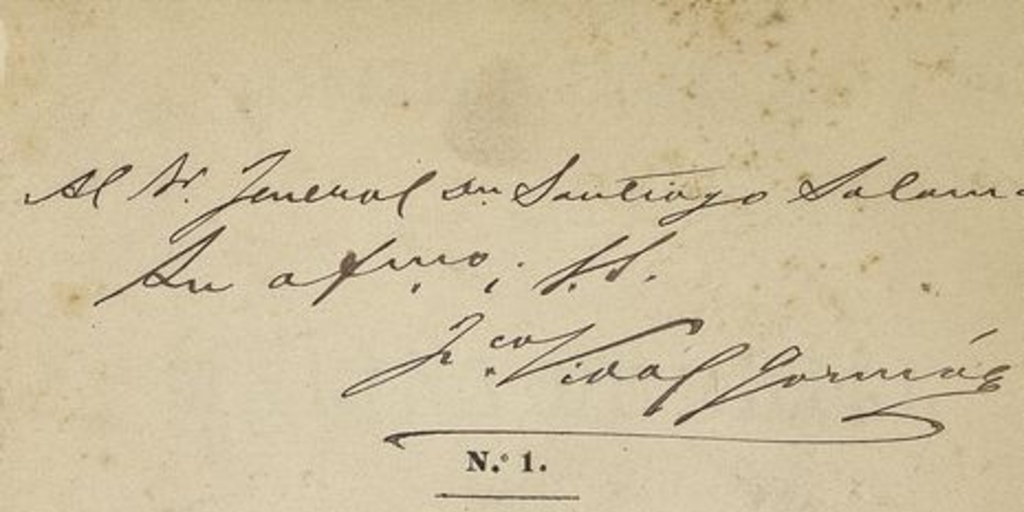 Al Sr. Jeneral Dn Santiago Salam
Su afmo. S.S.
Fco. Vidal Gormáz
N.º 1.